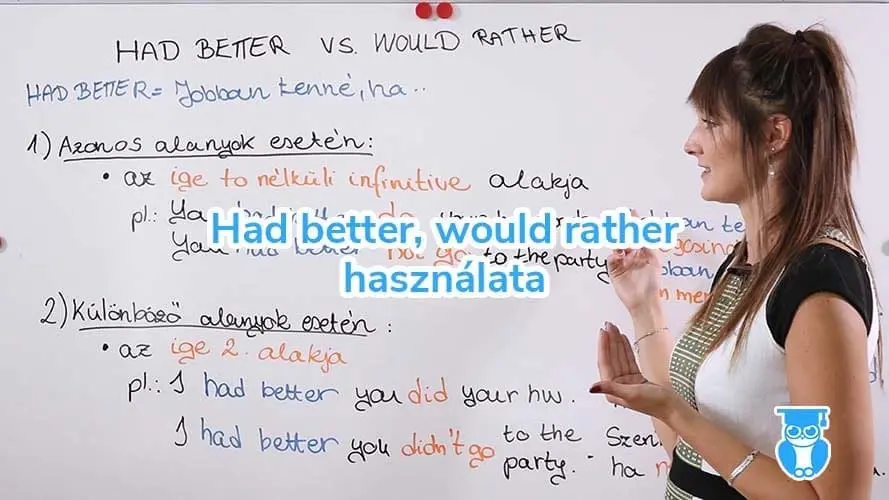 HAD BETTER VS. WOULD RATHER
HAD BETTER = Jobban tenné, ha..
1) Azonos alanyok esetén:
• az ige to nélküli infinitive alakja
pl.: You
Had better, would rather
You had better not go to the party.
használata
2) Különböző alanyok esetén:
• az ige 2. alakja
pl.: I had better you did your hw.
I had better you didn't go to the party. Szen
ha